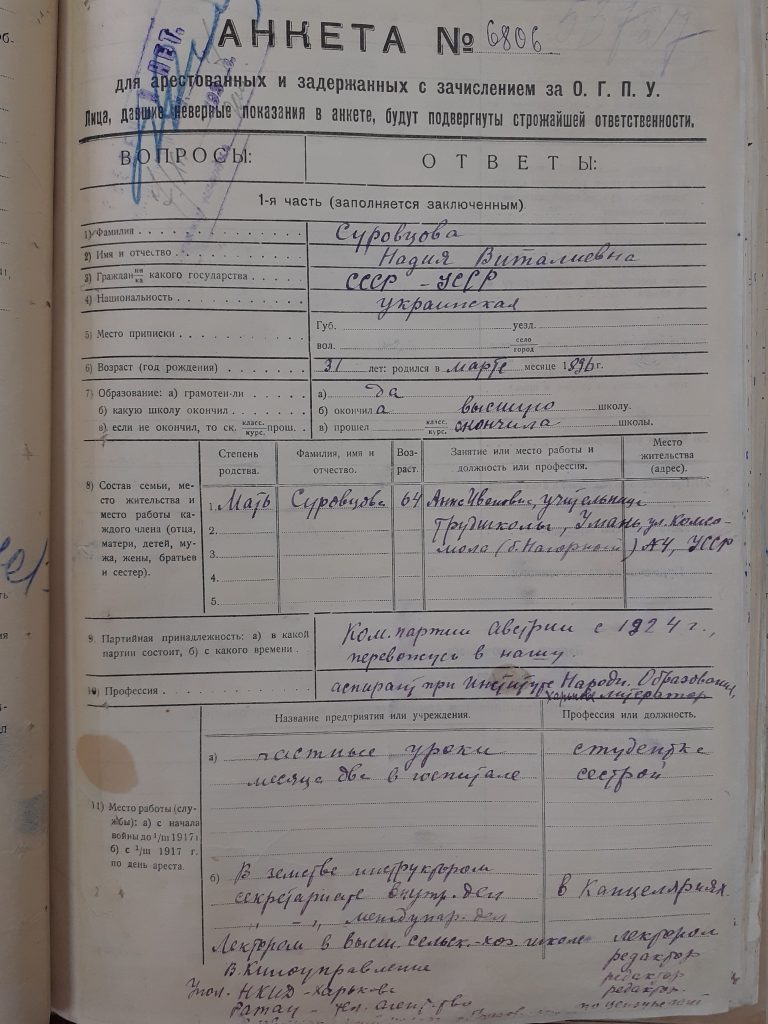 АНКЕТА № 6806
для арестованных и задержанных с зачислением за О. Г. П. У.
Лица, давшие неверные показания в анкете, будут подвергнуты строжайшей ответственности.
ВОПРОСЫ: ОТВЕТЫ:
1-я часть (заполняется заключенным)
1) Фамилия Суровцова
2) Имя и отчество Надия Виталиевна
3) Гражданин/ка какого государства СССР - УССР
4) Национальность украинская
5) Место приписки Губ. уезд.
вол. село/город
6) Возраст (год рождения) 31 лет: родился в марте месяце 1896 г.
7) Образование: а) грамотен-ли а) да
б) какую школу окончил б) окончила высшую школу.
в) если не окончил, то ск. класс./курс. прош. в) прошел класс./курс. скончила школы.
8) Состав семьи, место жительства и место работы каждого члена (отца, матери, детей, мужа, жены, братьев и сестер).
Степень родства. Фамилия, имя и отчество. Возраст. Занятие или место работы и должность или профессия. Место жительства (адрес).
1. Мать Суровцова 64 Анна Ивановна, учительница
2. трудшколы, Умань, ул. Комсо-
3. мола (б. Нагорная) №4, УССР
4.
5.
9. Партийная принадлежность: а) в какой партии состоит, б) с какого времени Ком. партии Австрии с 1924 г.,
перевожусь в нашу.
10) Профессия аспирант при Институте Народн. Образования,
Харьков литератор
Название предприятия или учреждения. Профессия или должность.
11) Место работы (службы): а) с начала войны до 1/III 1917 г. б) с 1/III 1917 г. по день ареста.
а) частные уроки студентка
месяца два в госпитале сестрой
б) В земстве инструктором
секретариате внутр. дел в канцеляриях.
" - " междунар. дел
Лектором в высш. сельск.-хоз. школе лектором
В. Киноуправление редактор
Упол. НКИД - Харьков редактор
Ратау - тел. агентство редактор.